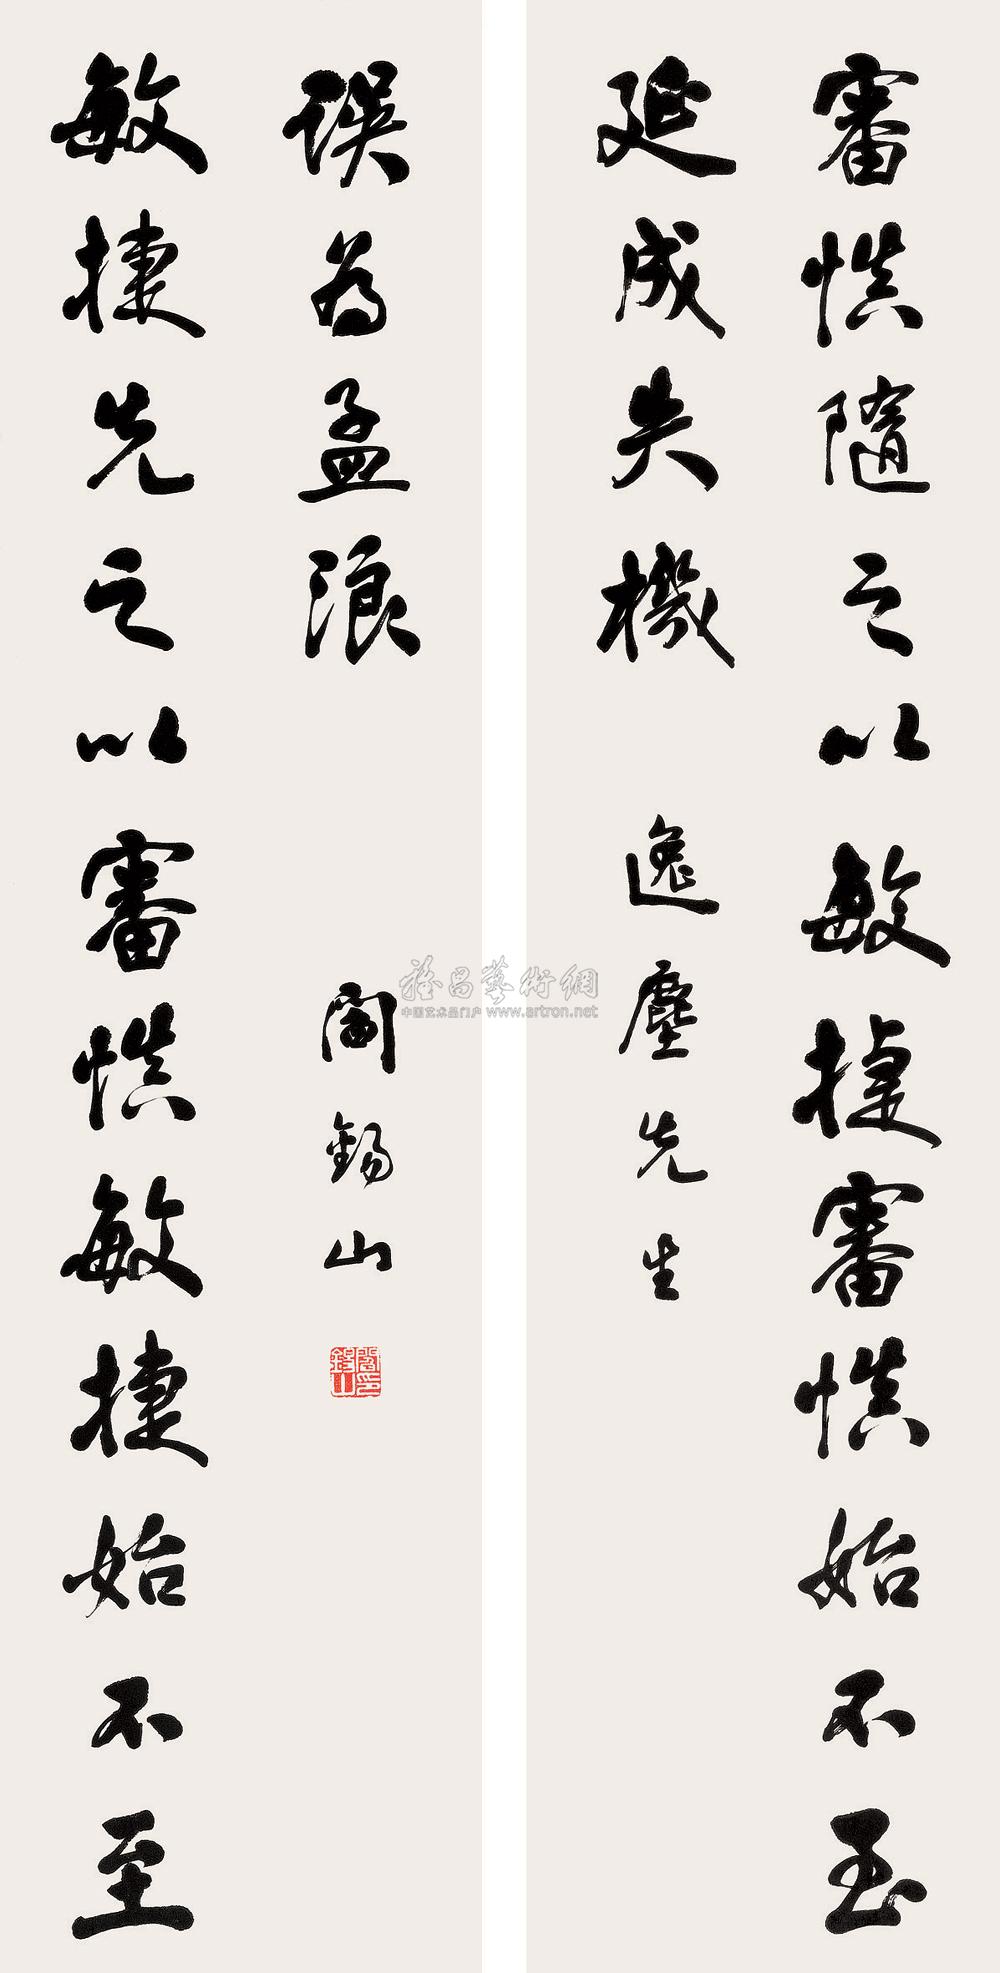 審慎隨之以敏捷審慎始不至
延成失機
逸塵先生
敏捷先之以審慎敏捷始不至
误為孟浪
閻錫山
閻錫山印
雅昌藝術網
中国艺术品门户 www.artron.net